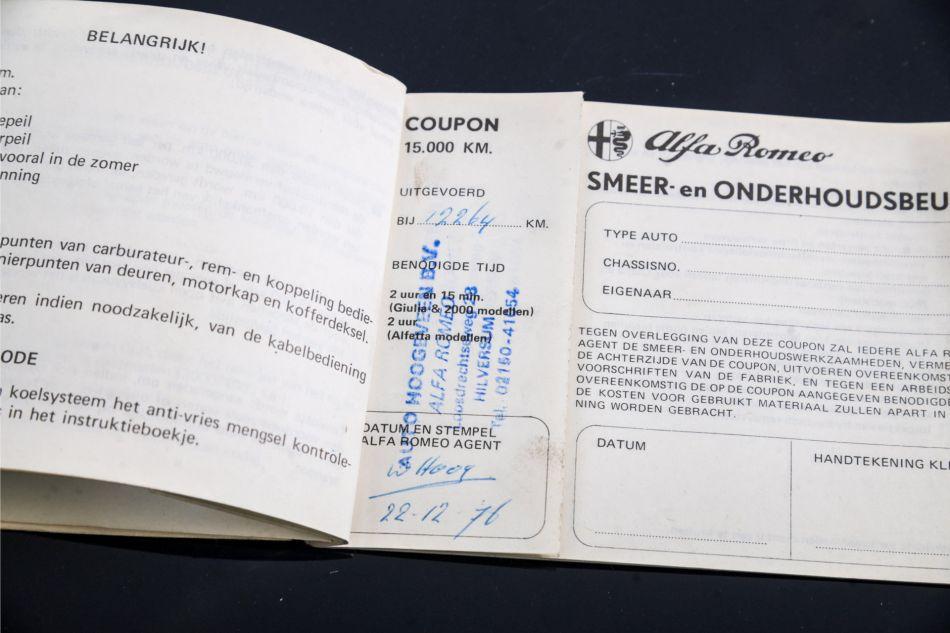 BELANGRIJK!
m.
an:
epeil
rpeil
vooral in de zomer
nning
punten van carburateur-, rem- en koppeling bedie-
nierpunten van deuren, motorkap en kofferdeksel.
eren indien noodzakelijk, van de kabelbediening
as.
ODE
koelsysteem het anti-vries mengsel kontrole-
in het instruktieboekje.
COUPON
15.000 KM.
UITGEVOERD
BIJ 12264 KM.
BENODIGDE TIJD
2 uur en 15 min.
(Giulia & 2000 modellen)
2 uur
(Alfetta modellen)
AUTO HOOGEVEEN B.V.
ALFA ROMEO
Loosdrechtseweg 28
HILVERSUM
Tel. 02150-41654
DATUM EN STEMPEL
ALFA ROMEO AGENT
22-12-76
Alfa Romeo
SMEER- en ONDERHOUDSBEU
TYPE AUTO
CHASSISNO.
EIGENAAR
TEGEN OVERLEGGING VAN DEZE COUPON ZAL IEDERE ALFA R
AGENT DE SMEER- EN ONDERHOUDSWERKZAAMHEDEN, VERME
DE ACHTERZIJDE VAN DE COUPON, UITVOEREN OVEREENKOMST
VOORSCHRIFTEN VAN DE FABRIEK, EN TEGEN EEN ARBEIDS
OVEREENKOMSTIG DE OP DE COUPON AANGEGEVEN BENODIGDE
DE KOSTEN VOOR GEBRUIKT MATERIAAL ZULLEN APART IN
NING WORDEN GEBRACHT.
DATUM
HANDTEKENING KLI